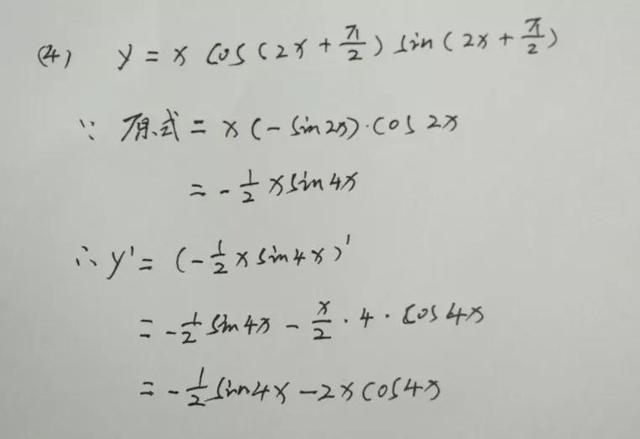 (4) y = x cos(2x + π/2) sin(2x + π/2)
∵ 原式 = x(-sin2x)·cos2x
= -1/2 x sin4x
∴ y' = (-1/2 x sin4x)'
= -1/2 sin4x - x/2 · 4 · cos4x
= -1/2 sin4x - 2x cos4x